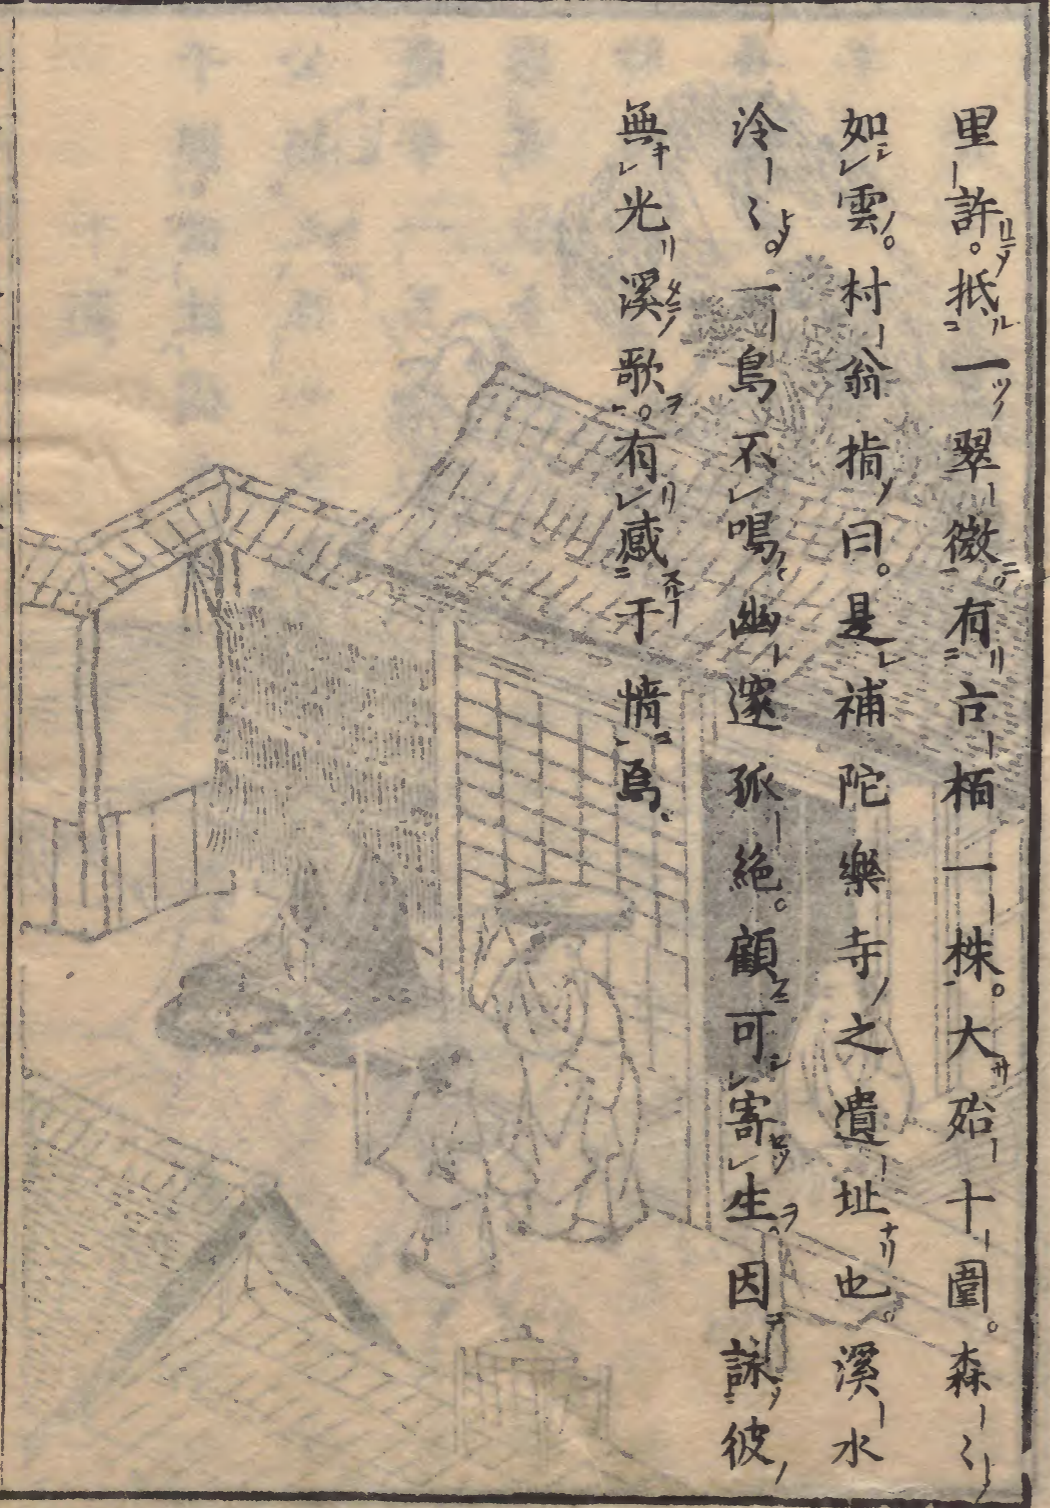 里許。抵一翠微。有古栢一株。大殆十圍。森〻
如雲。村翁指曰。是補陀樂寺之遺址也。溪水
泠〻。一鳥不鳴。幽邃孤絶。顧可寄生。因詠彼
無光溪歌。有感于情焉。